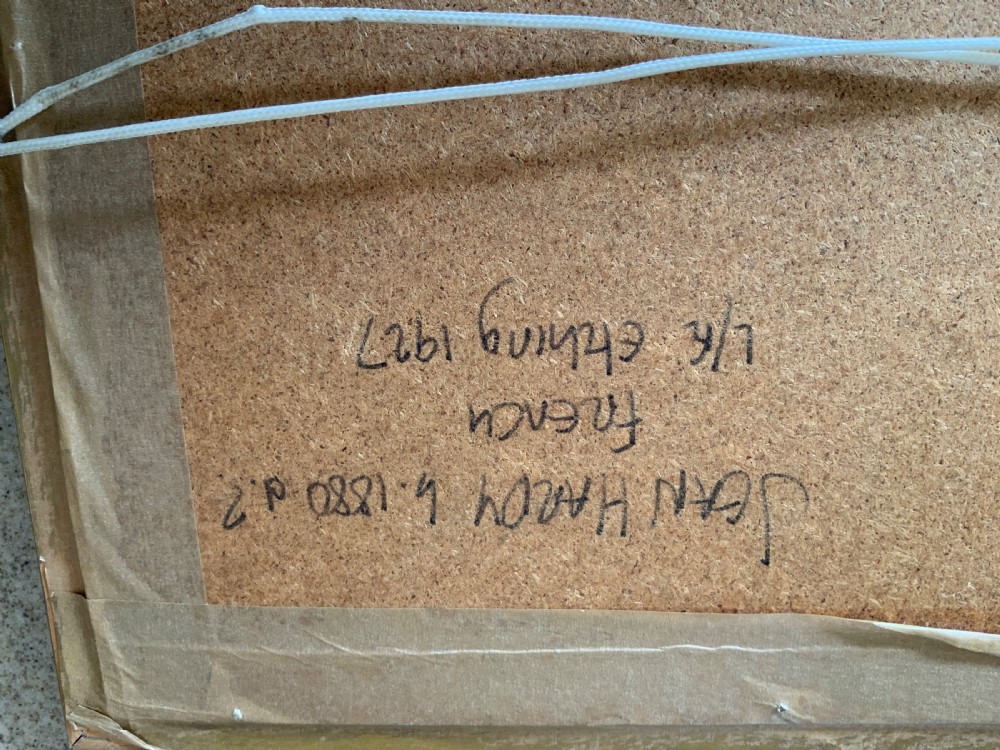 JEAN HARDY b. 1880 d.?
FRENCH
L/K etching 1927